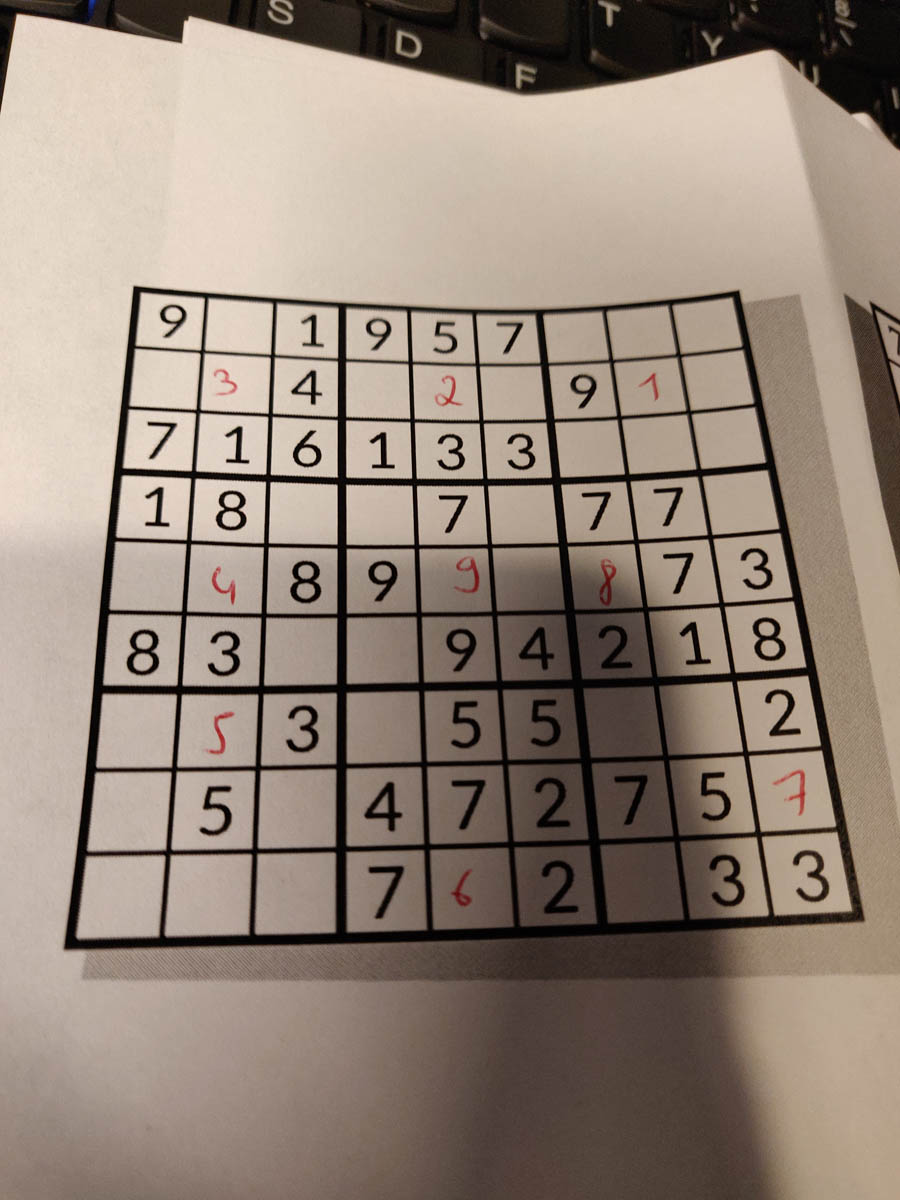 S T
D Y
F U
9 1 9 5 7
3 4 2 9 1
7 1 6 1 3 3
1 8 7 7 7
4 8 9 9 8 7 3
8 3 9 4 2 1 8
5 3 5 5 2
5 4 7 2 7 5 7
7 6 2 3 3